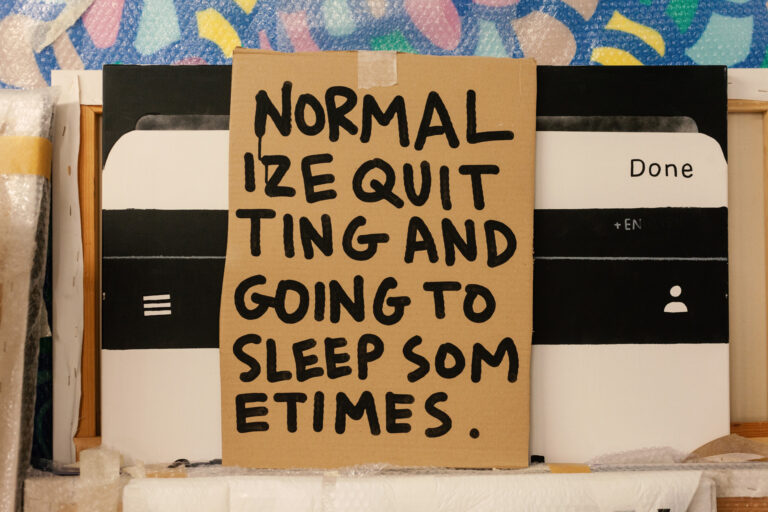 NORMAL
IZE QUIT
TING AND
GOING TO
SLEEP SOM
ETIMES.
Done
+EN